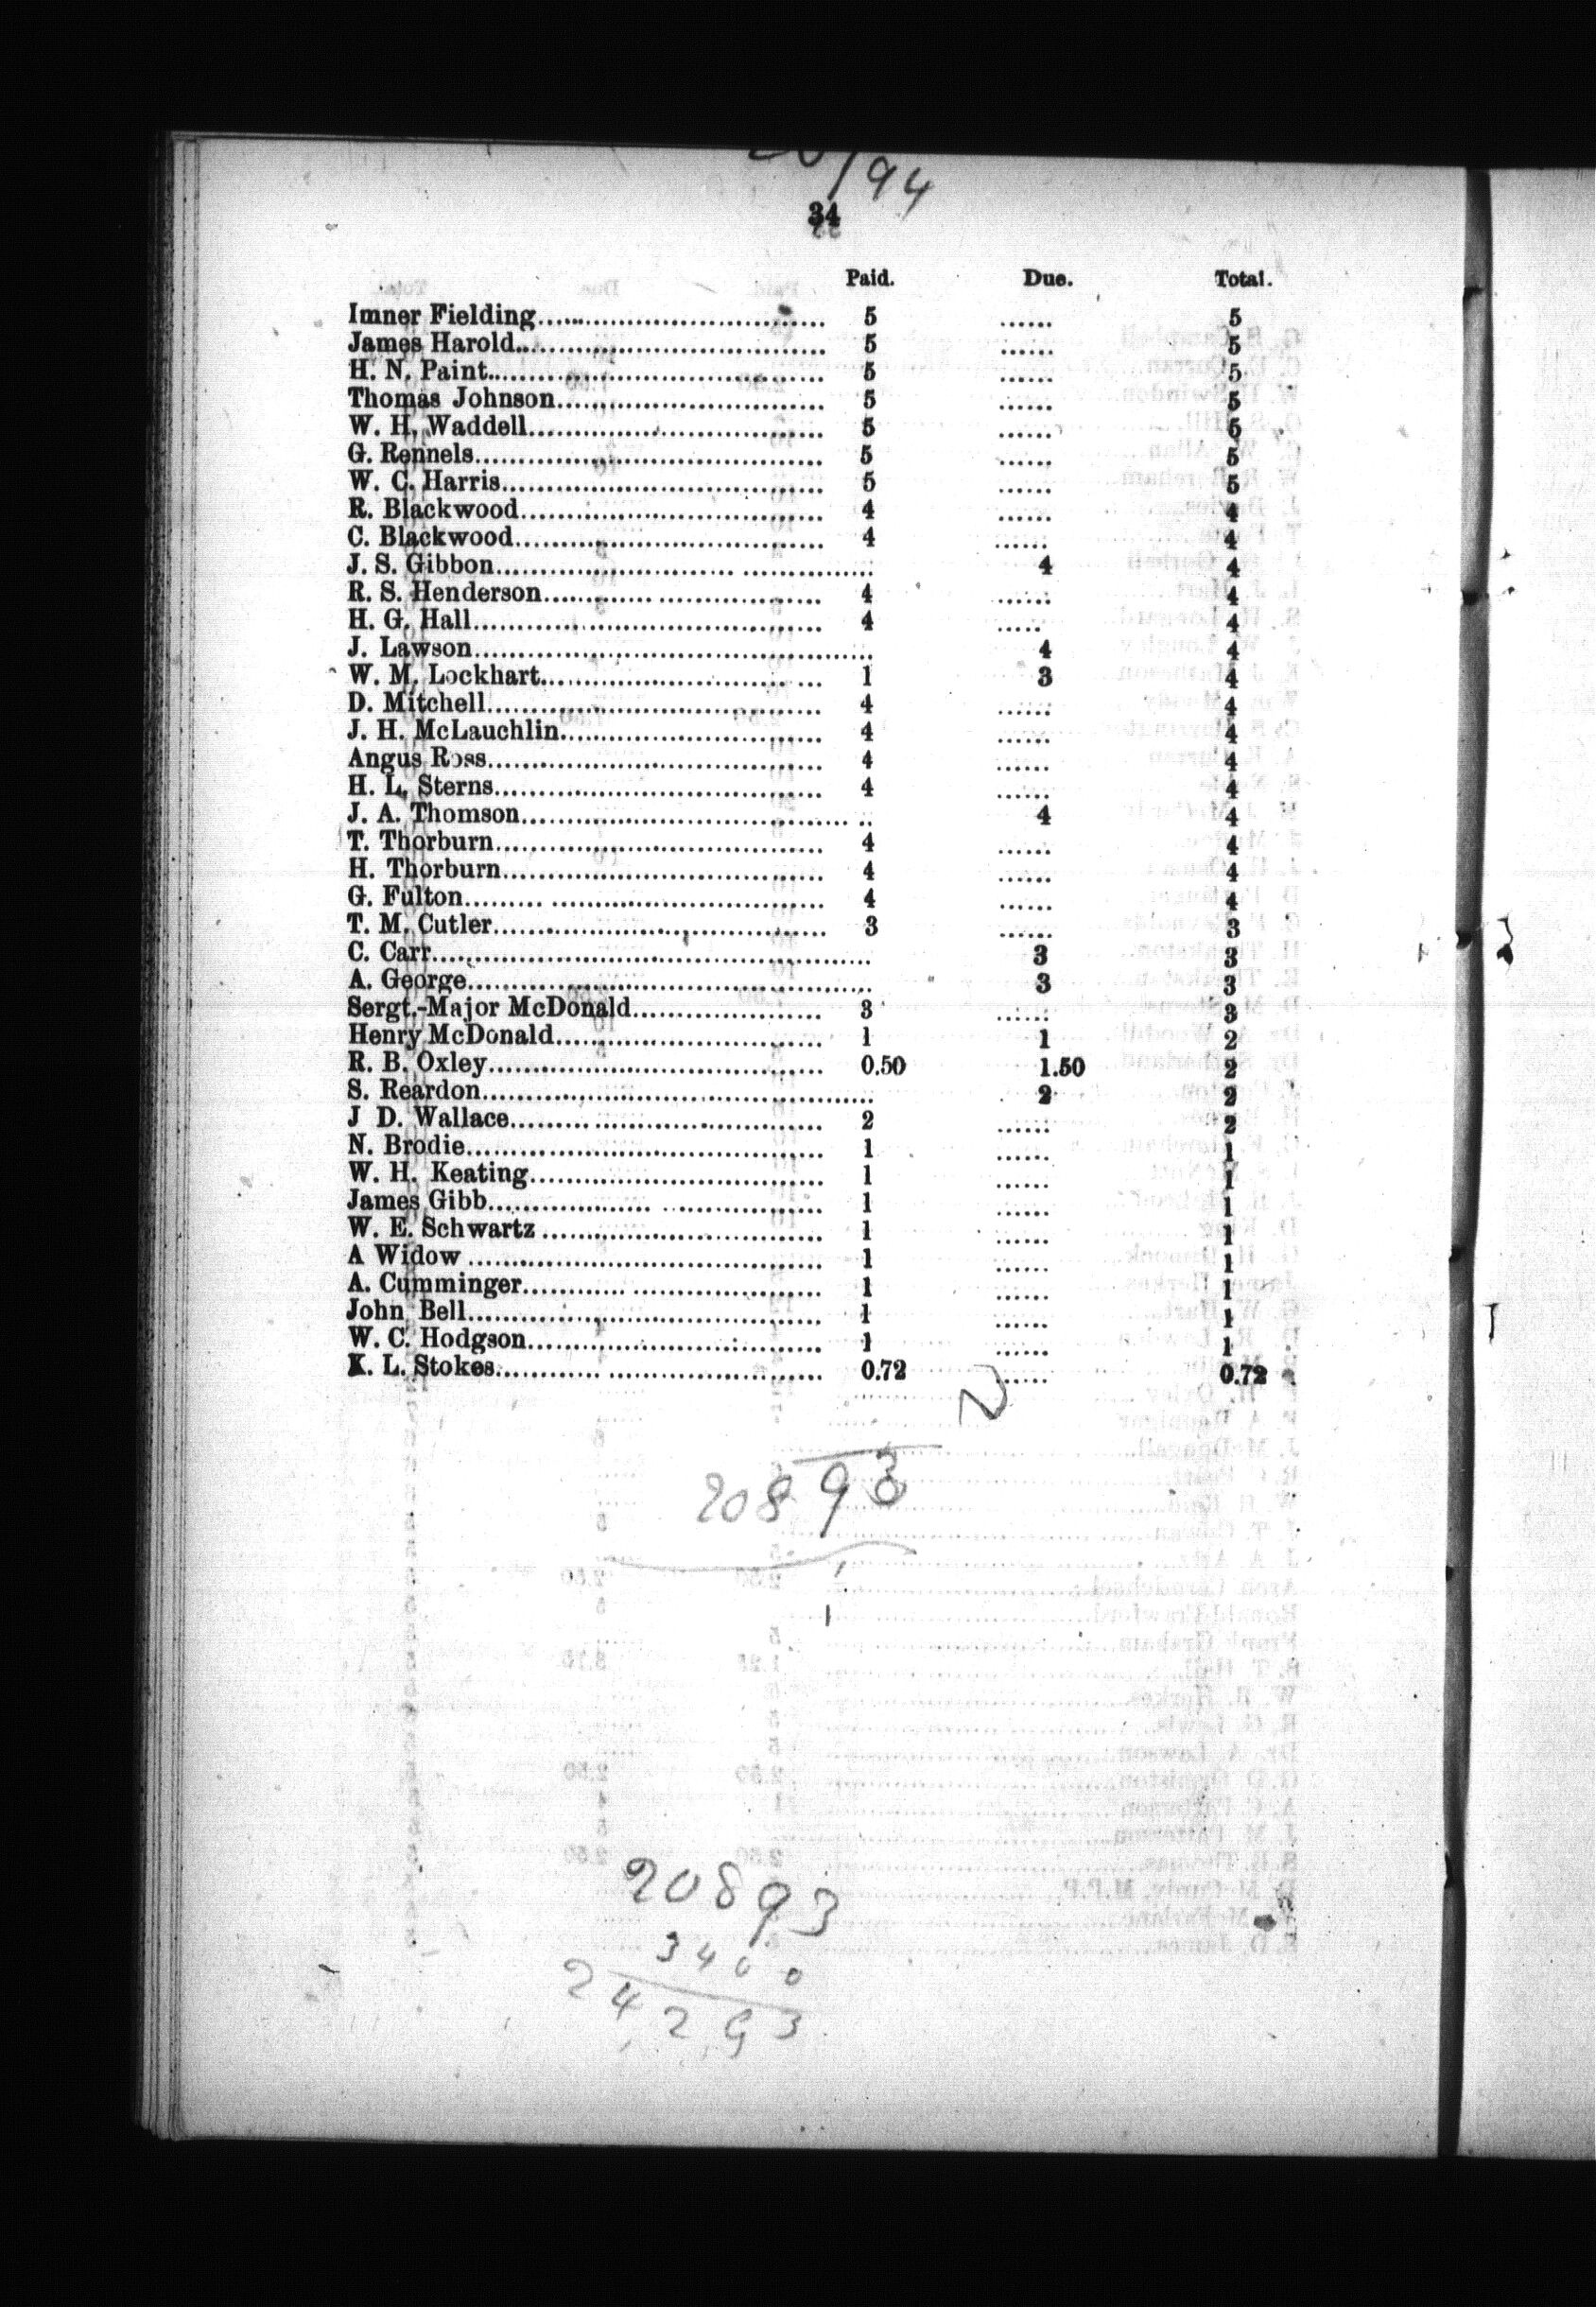 /94
34
Paid. Due. Total.
Imner Fielding........ 5 ...... 5
James Harold........ 5 ...... 5
H. N. Paint........ 5 ...... 5
Thomas Johnson........ 5 ...... 5
W. H. Waddell........ 5 ...... 5
G. Rennels........ 5 ...... 5
W. C. Harris........ 5 ...... 5
R. Blackwood........ 4 ...... 4
C. Blackwood........ 4 ...... 4
J. S. Gibbon........ 4 4
R. S. Henderson........ 4 ...... 4
H. G. Hall........ 4 ..... 4
J. Lawson........ 4 4
W. M. Lockhart........ 1 3 4
D. Mitchell........ 4 ...... 4
J. H. McLauchlin........ 4 ...... 4
Angus Ross........ 4 ...... 4
H. L. Sterns........ 4 ...... 4
J. A. Thomson........ 4 4
T. Thorburn........ 4 ...... 4
H. Thorburn........ 4 ...... 4
G. Fulton........ 4 ...... 4
T. M. Cutler........ 3 ...... 3
C. Carr........ 3 3
A. George........ 3 3
Sergt.-Major McDonald........ 3 ...... 3
Henry McDonald........ 1 1 2
R. B. Oxley........ 0.50 1.50 2
S. Reardon........ 2 2
J D. Wallace........ 2 ...... 2
N. Brodie........ 1 ...... 1
W. H. Keating........ 1 ...... 1
James Gibb........ 1 ...... 1
W. E. Schwartz ........ 1 ...... 1
A Widow ........ 1 ...... 1
A. Cumminger........ 1 ...... 1
John Bell........ 1 ...... 1
W. C. Hodgson........ 1 ...... 1
L. Stokes........ 0.72 ...... 0.72
20893
20893
3400
24293